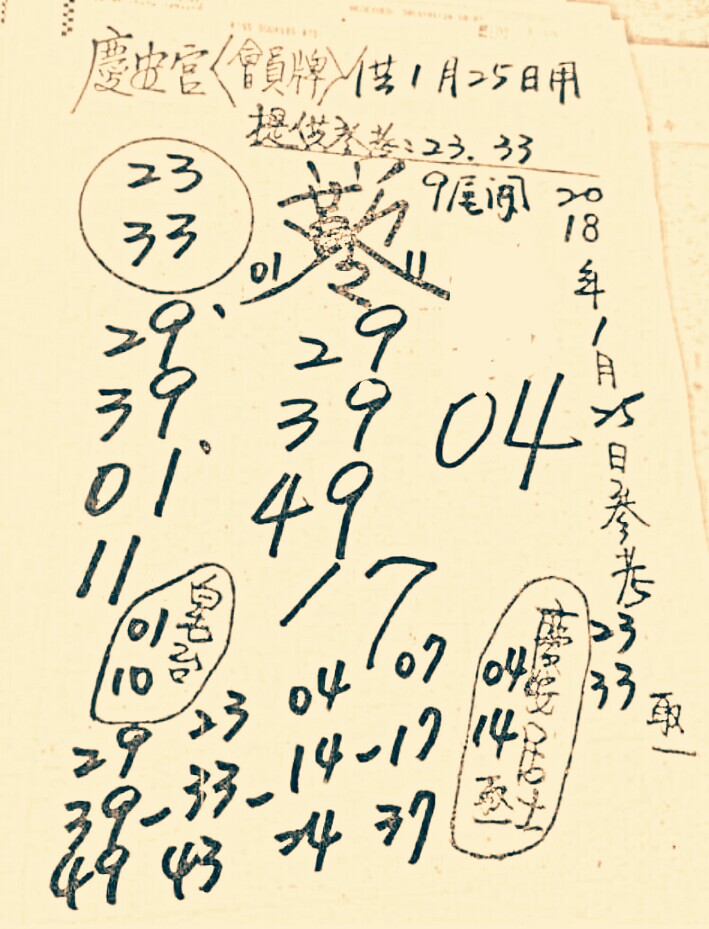 慶安宮〈會員牌〉供1月25日用
提供參考:23.33
9尾開
23
33
01 11
29
39
01
11
29
39
49
04
17
2018年1月25日參考
23
33
取一
01
10
慶安居士
04
14
取一
29 23 04 07
39-33-14-17
49 43 24 37